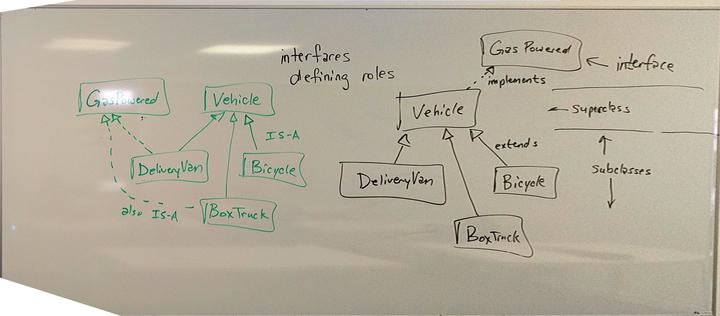 interfaces
defining roles
GasPowered
Vehicle
IS-A
DeliveryVan
Bicycle
also IS-A
BoxTruck
Gas Powered
interface
implements
Vehicle
Superclass
extends
Subclasses
DeliveryVan
Bicycle
BoxTruck